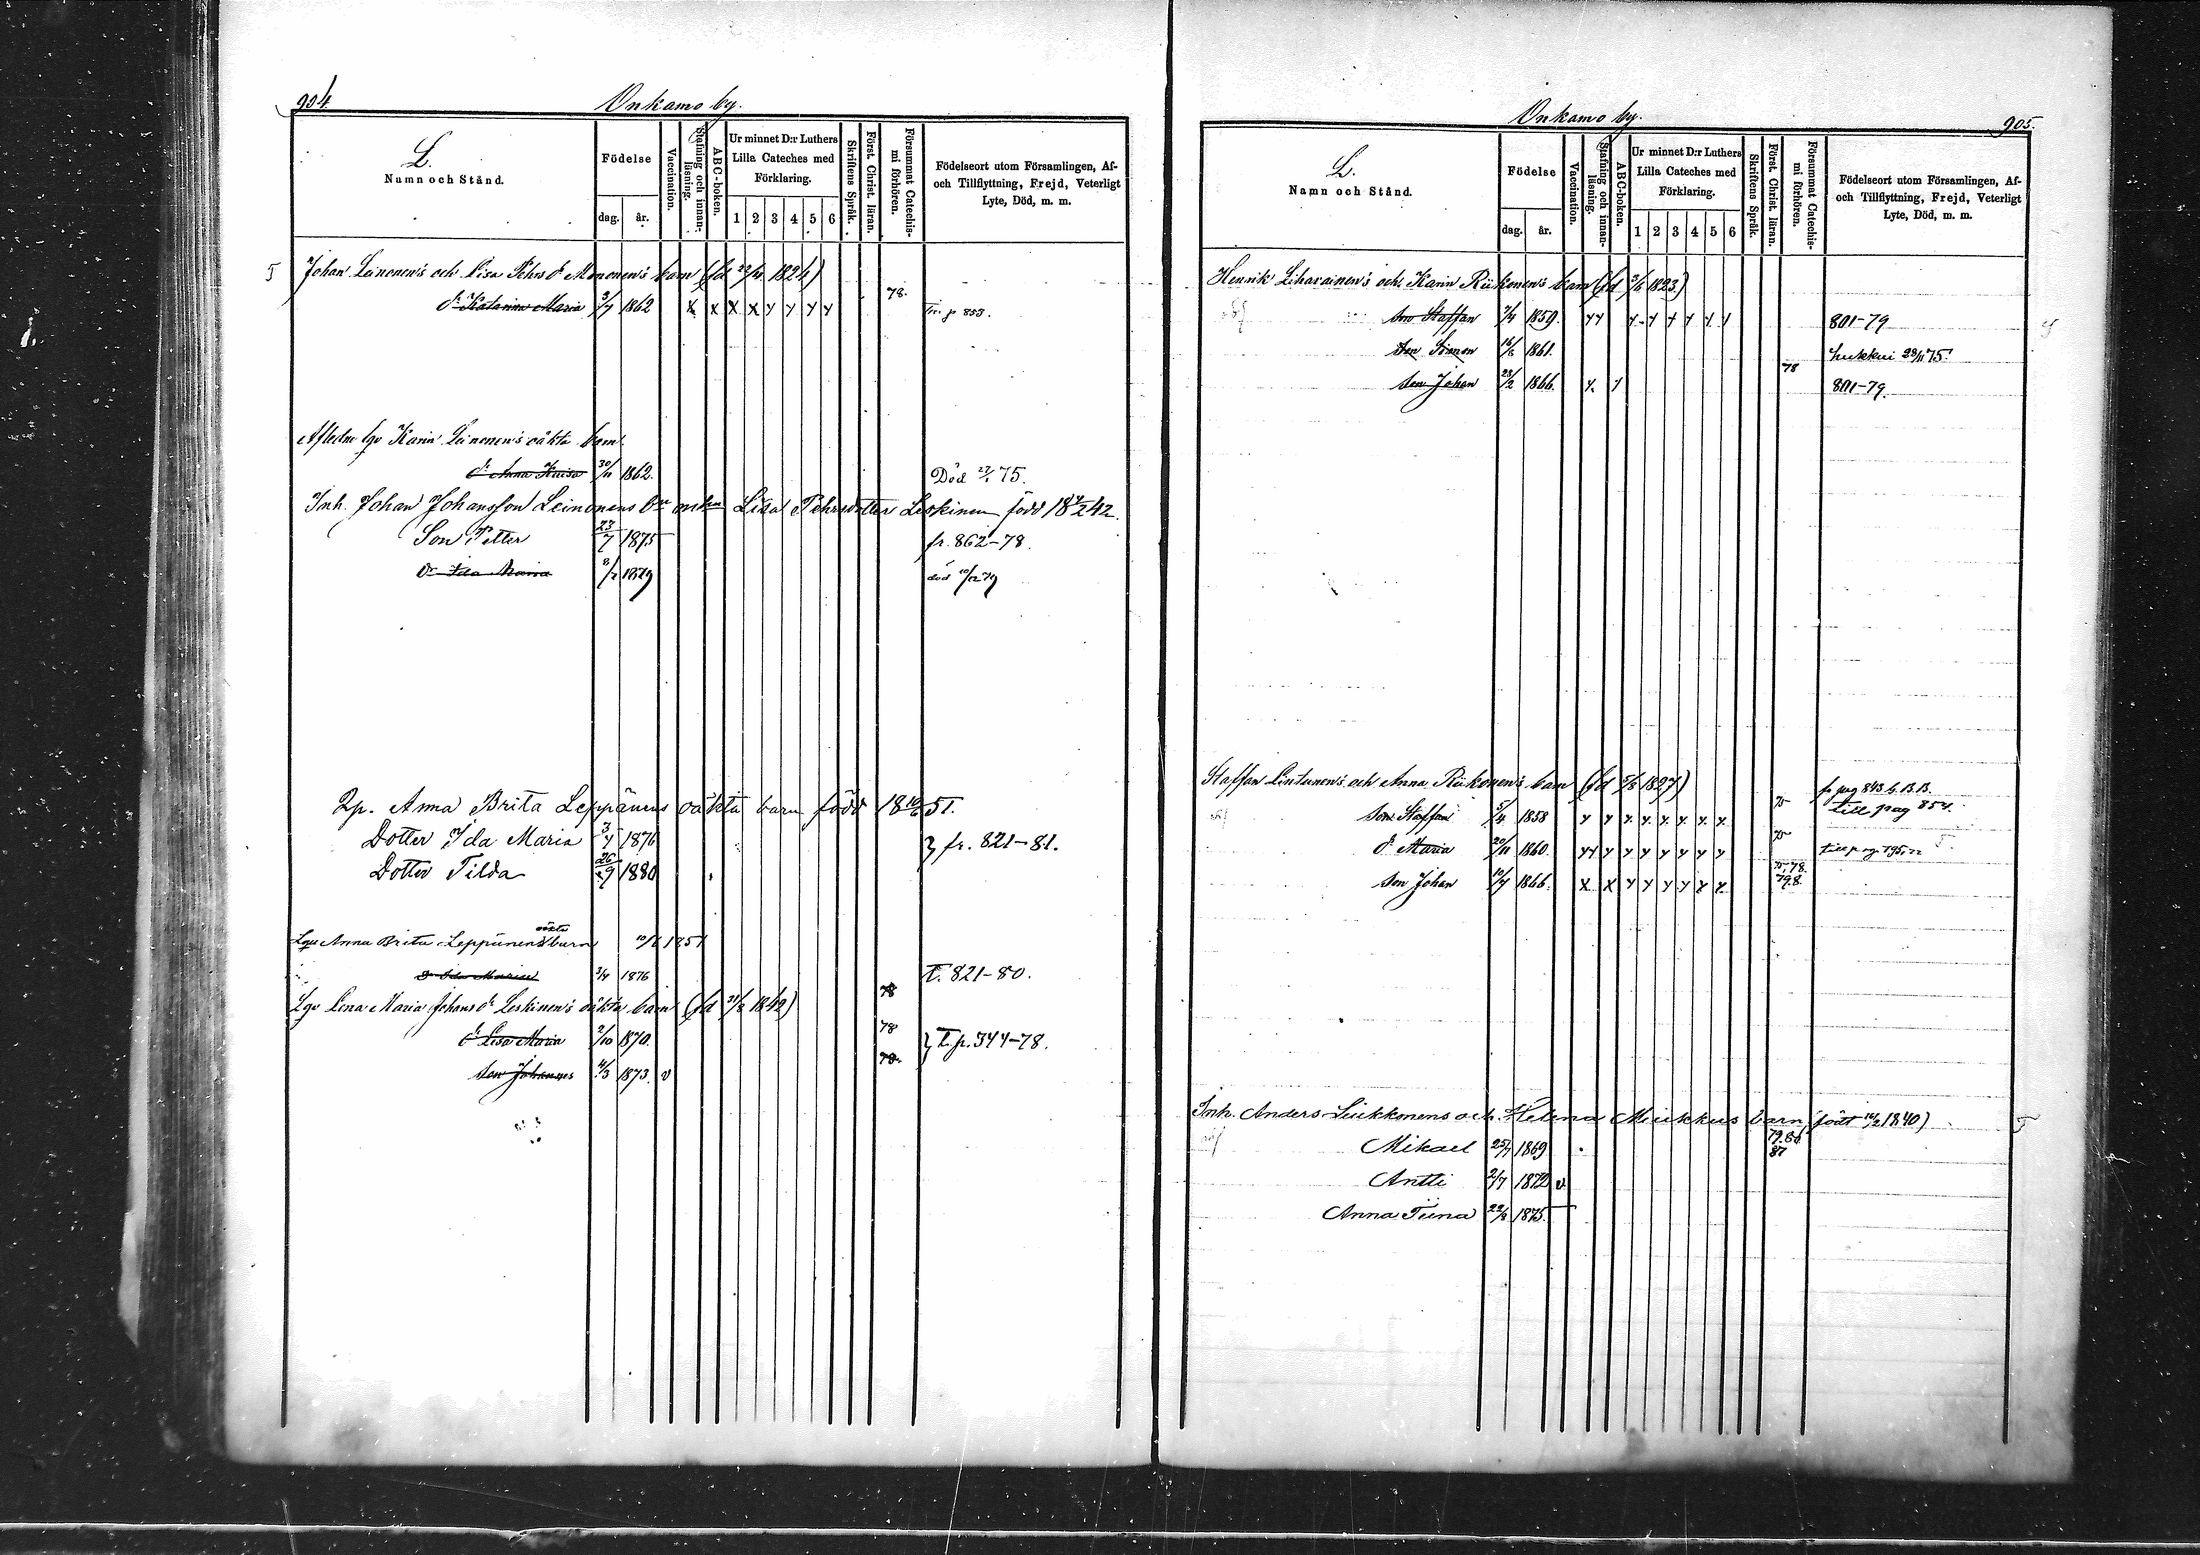 904.
Onkamo by.
L.
Namn och Stånd.
Födelse
dag. år.
Vaccination.
Stafning och innanläsning.
ABC-boken.
Ur minnet D:r Luthers Lilla Cateches med Förklaring.
1 2 3 4 5 6
Skriftens Språk.
Först. Christ. läran.
Försummat Catechismi förhören.
Födelseort utom Församlingen, Af- och Tillflyttning, Frejd, Veterligt Lyte, Död, m. m.
Johan Leinonen's och Lisa Pehrs dr Mononen's barn (fd 1824)
dr Katarina Maria 3/7 1862 x x x x y y y y 78. p 853.
Karin Leinonen's oäkta barn
dr Anna Kaisa 30/11 1862. Död 75.
Inh. Johan Johansson Leinonens Lisa Pehrsdotter Leskinen född 18 42.
Son Petter 23/7 1875 fr. 862-78.
dr Ida Maria 1879 död 10/12 79
Anna Brita Leppänens oäkta barn född 18 51.
Dotter Ida Maria 3/4 1876 } fr. 821-81.
Dotter Tilda 26/9 1880
Anna Brita Leppänens oäkta barn 1851
dr Ida Maria 3/4 1876 T. 821-80.
Lena Maria Johans dr Leskinen's oäkta barn (fd 1842) 78
dr Lisa Maria 2/10 1870. 78 } T. p. 344-78.
son Johannes 1873. v 78.
Onkamo by.
905.
L.
Namn och Stånd.
Födelse
dag. år.
Vaccination.
Stafning och innanläsning.
ABC-boken.
Ur minnet D:r Luthers Lilla Cateches med Förklaring.
1 2 3 4 5 6
Skriftens Språk.
Först. Christ. läran.
Försummat Catechismi förhören.
Födelseort utom Församlingen, Af- och Tillflyttning, Frejd, Veterligt Lyte, Död, m. m.
Henrik Liharainen's och Karin Riikonen's barn (fd 1823)
son Staffan 1859. 801-79
son Simon 1861. hukkui 75.
son Johan 23/2 1866. 78 801-79.
Staffan Lintunen's och Anna Riikonen's barn (fd 1827) fr pag 843
son Staffan 5/4 1858 75 till pag 854.
dr Maria 20/11 1860. 75 till pag
son Johan 10/7 1866. 75, 78. 79.8
Inh. Anders Liukkonens och Helena Miukkus barn (född 1840)
Mikael 1869 79.80 87
Antti 2/7 1872 v
Anna Tiina 1875